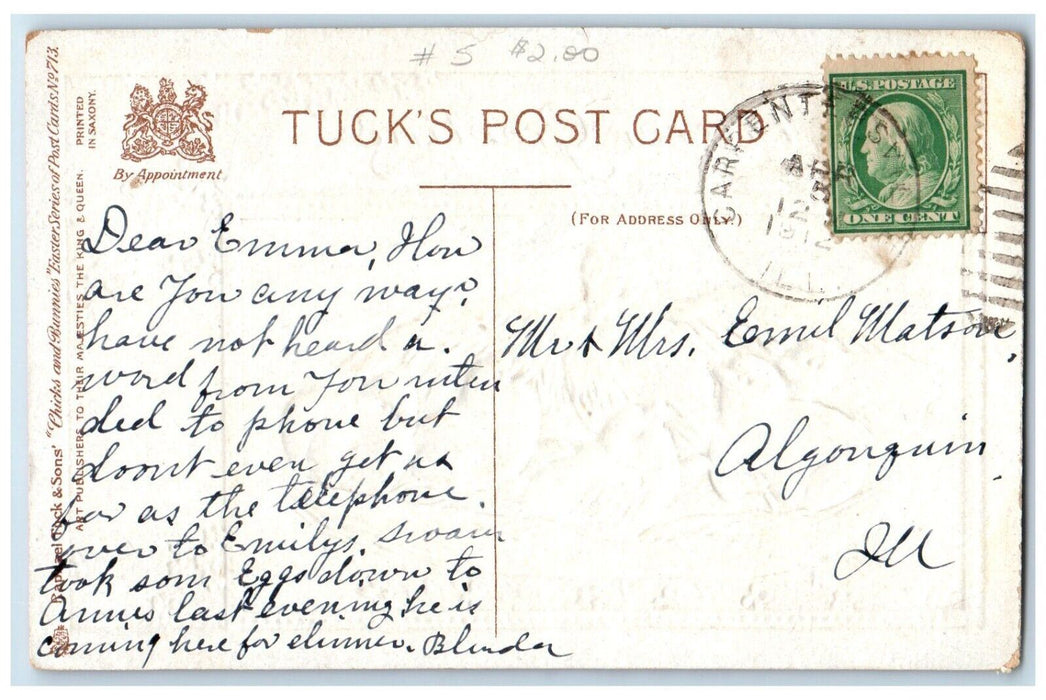 # 5 $2.00
TUCK'S POST CARD
By Appointment
(FOR ADDRESS ONLY.)
CARPENTERSVILLE
APR
5
12
1912
ILL.
U.S. POSTAGE
ONE CENT
Raphael Tuck & Sons' "Chicks and Bunnies" Easter Series of Post Cards Nº 713.
ART PUBLISHERS TO THEIR MAJESTIES THE KING & QUEEN.
PRINTED
IN SAXONY.
Dear Emma, How
are You any way?
have not heard a
word from You inten
ded to phone but
doont even get as
far as the telephone.
over to Emilys.
took som Eggs down to
last evening he is
coming here for dinner.
Mr & Mrs. Emil Matson,
Algonquin,
Ill